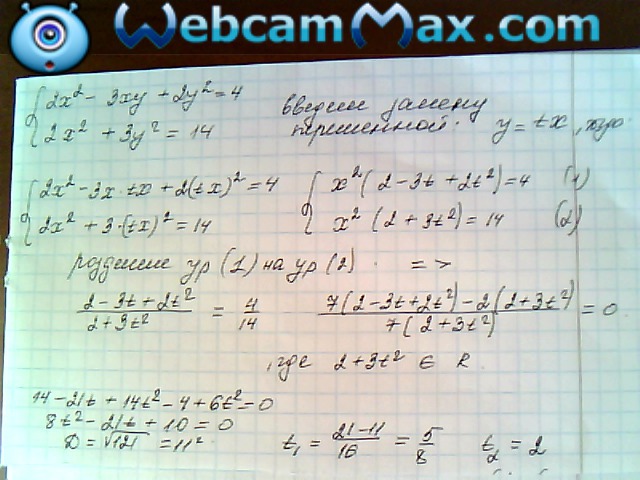 WebcamMax.com
2x² - 3xy + 2y² = 4
2x² + 3y² = 14
введем замену
переменной: y = tx,
2x² - 3x·tx + 2(tx)² = 4
2x² + 3·(tx)² = 14
x²(2 - 3t + 2t²) = 4 (1)
x²(2 + 3t²) = 14 (2)
ур (1) на ур (2) =>
(2 - 3t + 2t²)/(2 + 3t²) = 4/14
(7(2 - 3t + 2t²) - 2(2 + 3t²))/(7(2 + 3t²)) = 0
, где 2 + 3t² ∈ R
14 - 21t + 14t² - 4 + 6t² = 0
8t² - 21t + 10 = 0
D = √121 = 11²
t₁ = (21 - 11)/16 = 5/8 t₂ = 2